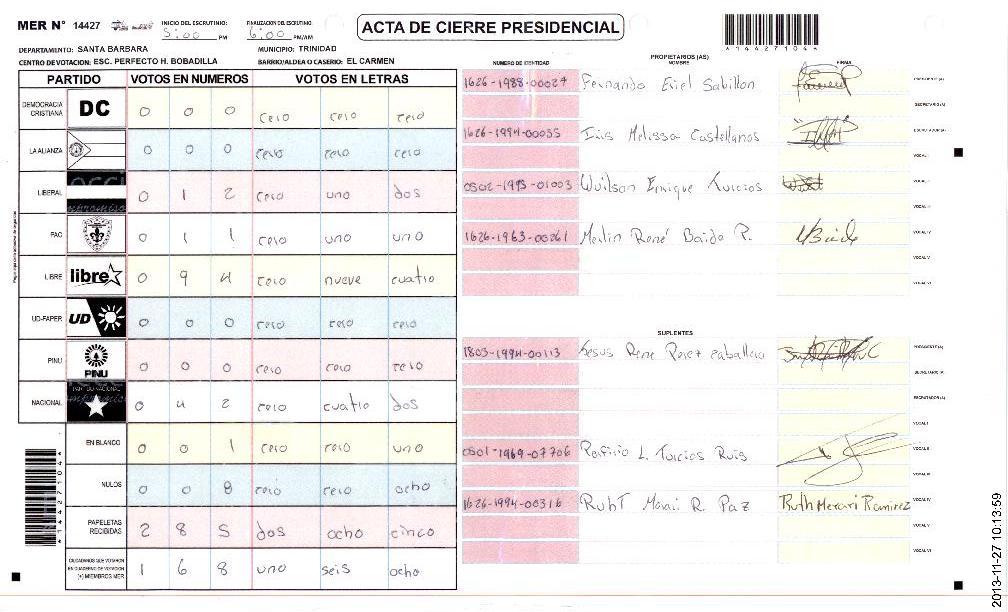 MER Nº 14427 INICIO DEL ESCRUTINIO: 5:00 PM FINALIZACION DEL ESCRUTINIO: 6:00 PM/AM ACTA DE CIERRE PRESIDENCIAL
DEPARTAMENTO: SANTA BARBARA MUNICIPIO: TRINIDAD
CENTRO DE VOTACION: ESC. PERFECTO H. BOBADILLA BARRIO/ALDEA O CASERIO: EL CARMEN
PARTIDO VOTOS EN NUMEROS VOTOS EN LETRAS
DEMOCRACIA CRISTIANA DC 0 0 0 cero cero cero
LA ALIANZA 0 0 0 cero cero cero
LIBERAL 0 1 2 cero uno dos
PAC 0 1 1 cero uno uno
LIBRE libre 0 9 4 cero nueve cuatro
UD-FAPER UD 0 0 0 cero cero cero
PINU PINU 0 0 0 cero cero cero
NACIONAL 0 4 2 cero cuatro dos
EN BLANCO 0 0 1 cero cero uno
NULOS 0 0 8 cero cero ocho
PAPELETAS RECIBIDAS 2 8 5 dos ocho cinco
CIUDADANOS QUE VOTARON EN CUADERNO DE VOTACION (+) MIEMBROS MER 1 6 8 uno seis ocho
NUMERO DE IDENTIDAD PROPIETARIOS (AS) NOMBRE FIRMA
1626-1988-00027 Fernando Eriel Sabillon PRESIDENTE (A)
SECRETARIO (A)
1626-1994-00035 Iris Melissa Castellanos ESCRUTADOR (A)
VOCAL I
0502-1993-01003 Wuilson Enrique Turcios
VOCAL III
1626-1963-00261 Merlin René Baide P. VOCAL IV
VOCAL V
VOCAL VI
SUPLENTES
1803-1994-00113 Jesus Rene Perez Caballero PRESIDENTE (A)
SECRETARIO (A)
ESCRUTADOR (A)
VOCAL I
0501-1969-07706 Porfirio L. Turcios Ruis VOCAL II
VOCAL III
1626-1994-00316 RuhT Merari R. Paz Ruth Merari Ramirez VOCAL IV
VOCAL V
VOCAL VI
2013-11-27 10:13:59